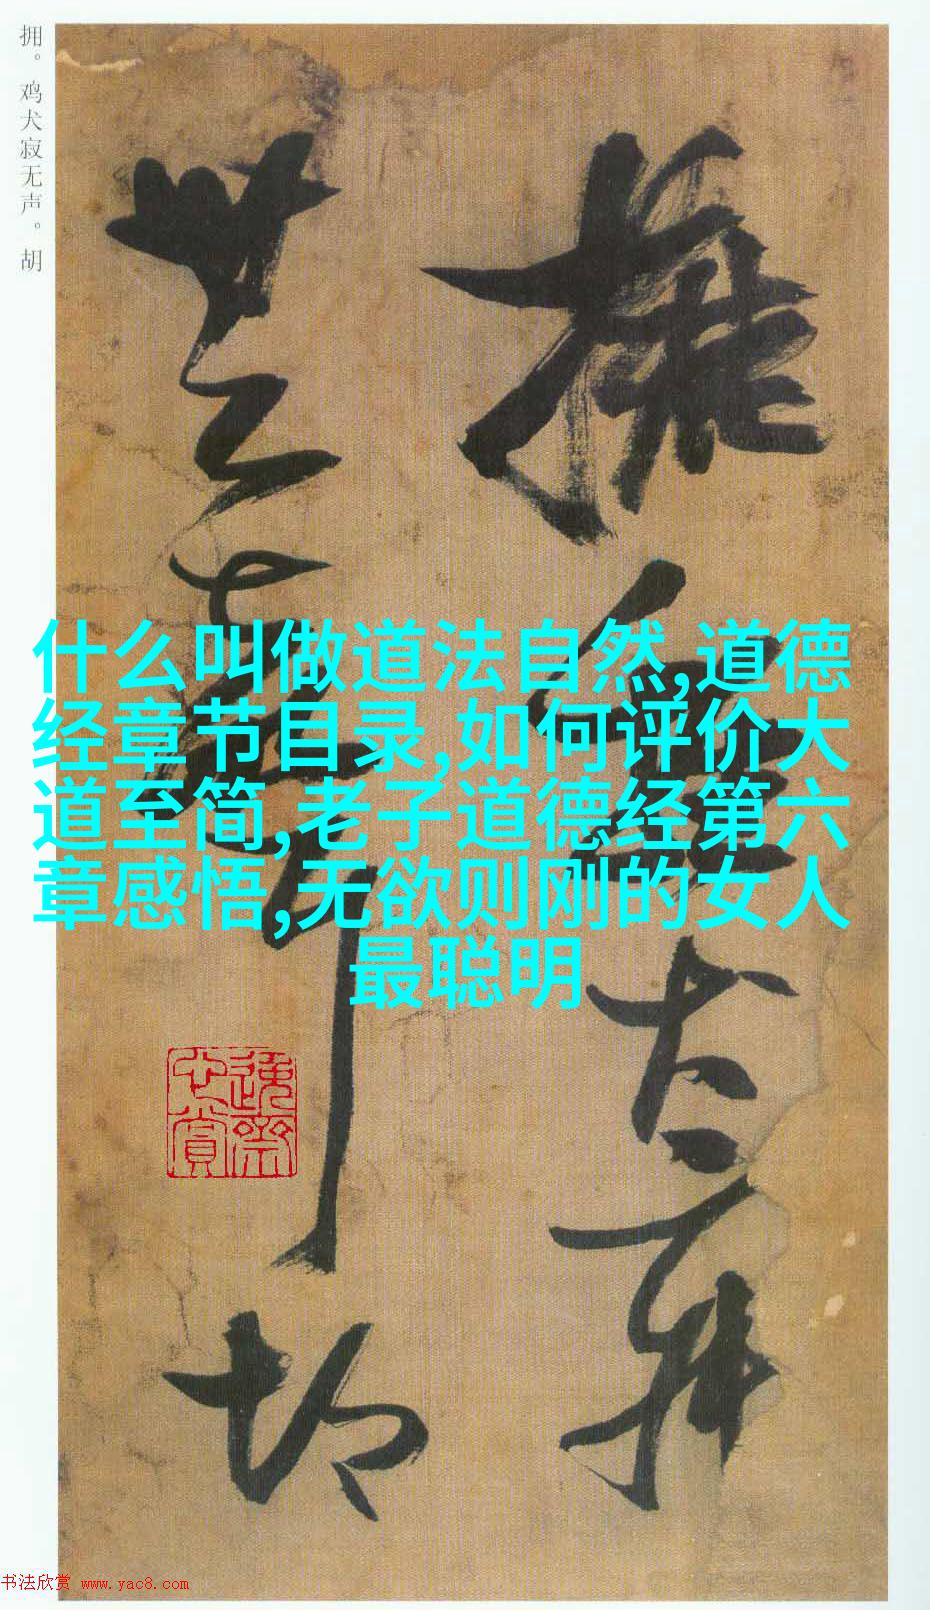 拥。鸡犬寂无声。胡
拥
鸡犬寂
无声
胡
什么叫做道法自然,道德
经章节目录,如何评价大
道至简,老子道德经第六
章感悟,无欲则刚的女人
最聪明
书法欣赏 www.yac8.com